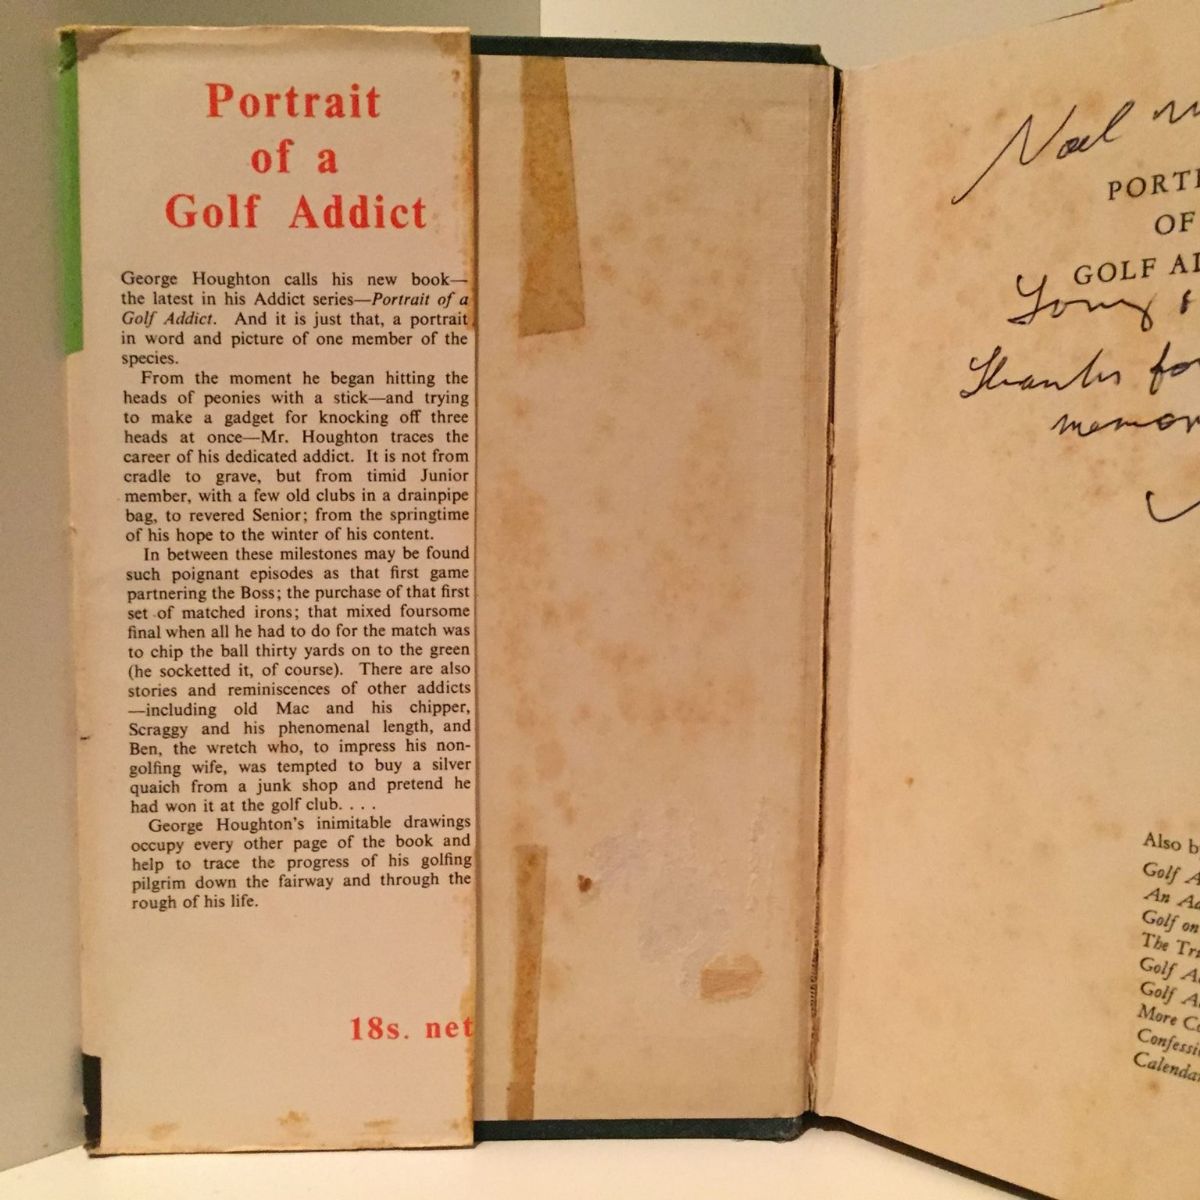 Portrait
of a
Golf Addict
George Houghton calls his new book—
the latest in his Addict series—Portrait of a
Golf Addict. And it is just that, a portrait
in word and picture of one member of the
species.
From the moment he began hitting the
heads of peonies with a stick—and trying
to make a gadget for knocking off three
heads at once—Mr. Houghton traces the
career of his dedicated addict. It is not from
cradle to grave, but from timid Junior
member, with a few old clubs in a drainpipe
bag, to revered Senior; from the springtime
of his hope to the winter of his content.
In between these milestones may be found
such poignant episodes as that first game
partnering the Boss; the purchase of that first
set of matched irons; that mixed foursome
final when all he had to do for the match was
to chip the ball thirty yards on to the green
(he socketted it, of course). There are also
stories and reminiscences of other addicts
—including old Mac and his chipper,
Scraggy and his phenomenal length, and
Ben, the wretch who, to impress his non-
golfing wife, was tempted to buy a silver
quaich from a junk shop and pretend he
had won it at the golf club. . . .
George Houghton's inimitable drawings
occupy every other page of the book and
help to trace the progress of his golfing
pilgrim down the fairway and through the
rough of his life.
18s. net
Noel
PORT
OF
GOLF A
Thanks for
Also b
Golf A
An Ad
Golf on
The Tr
Golf A
Golf A
More Co
Confessi
Calenda